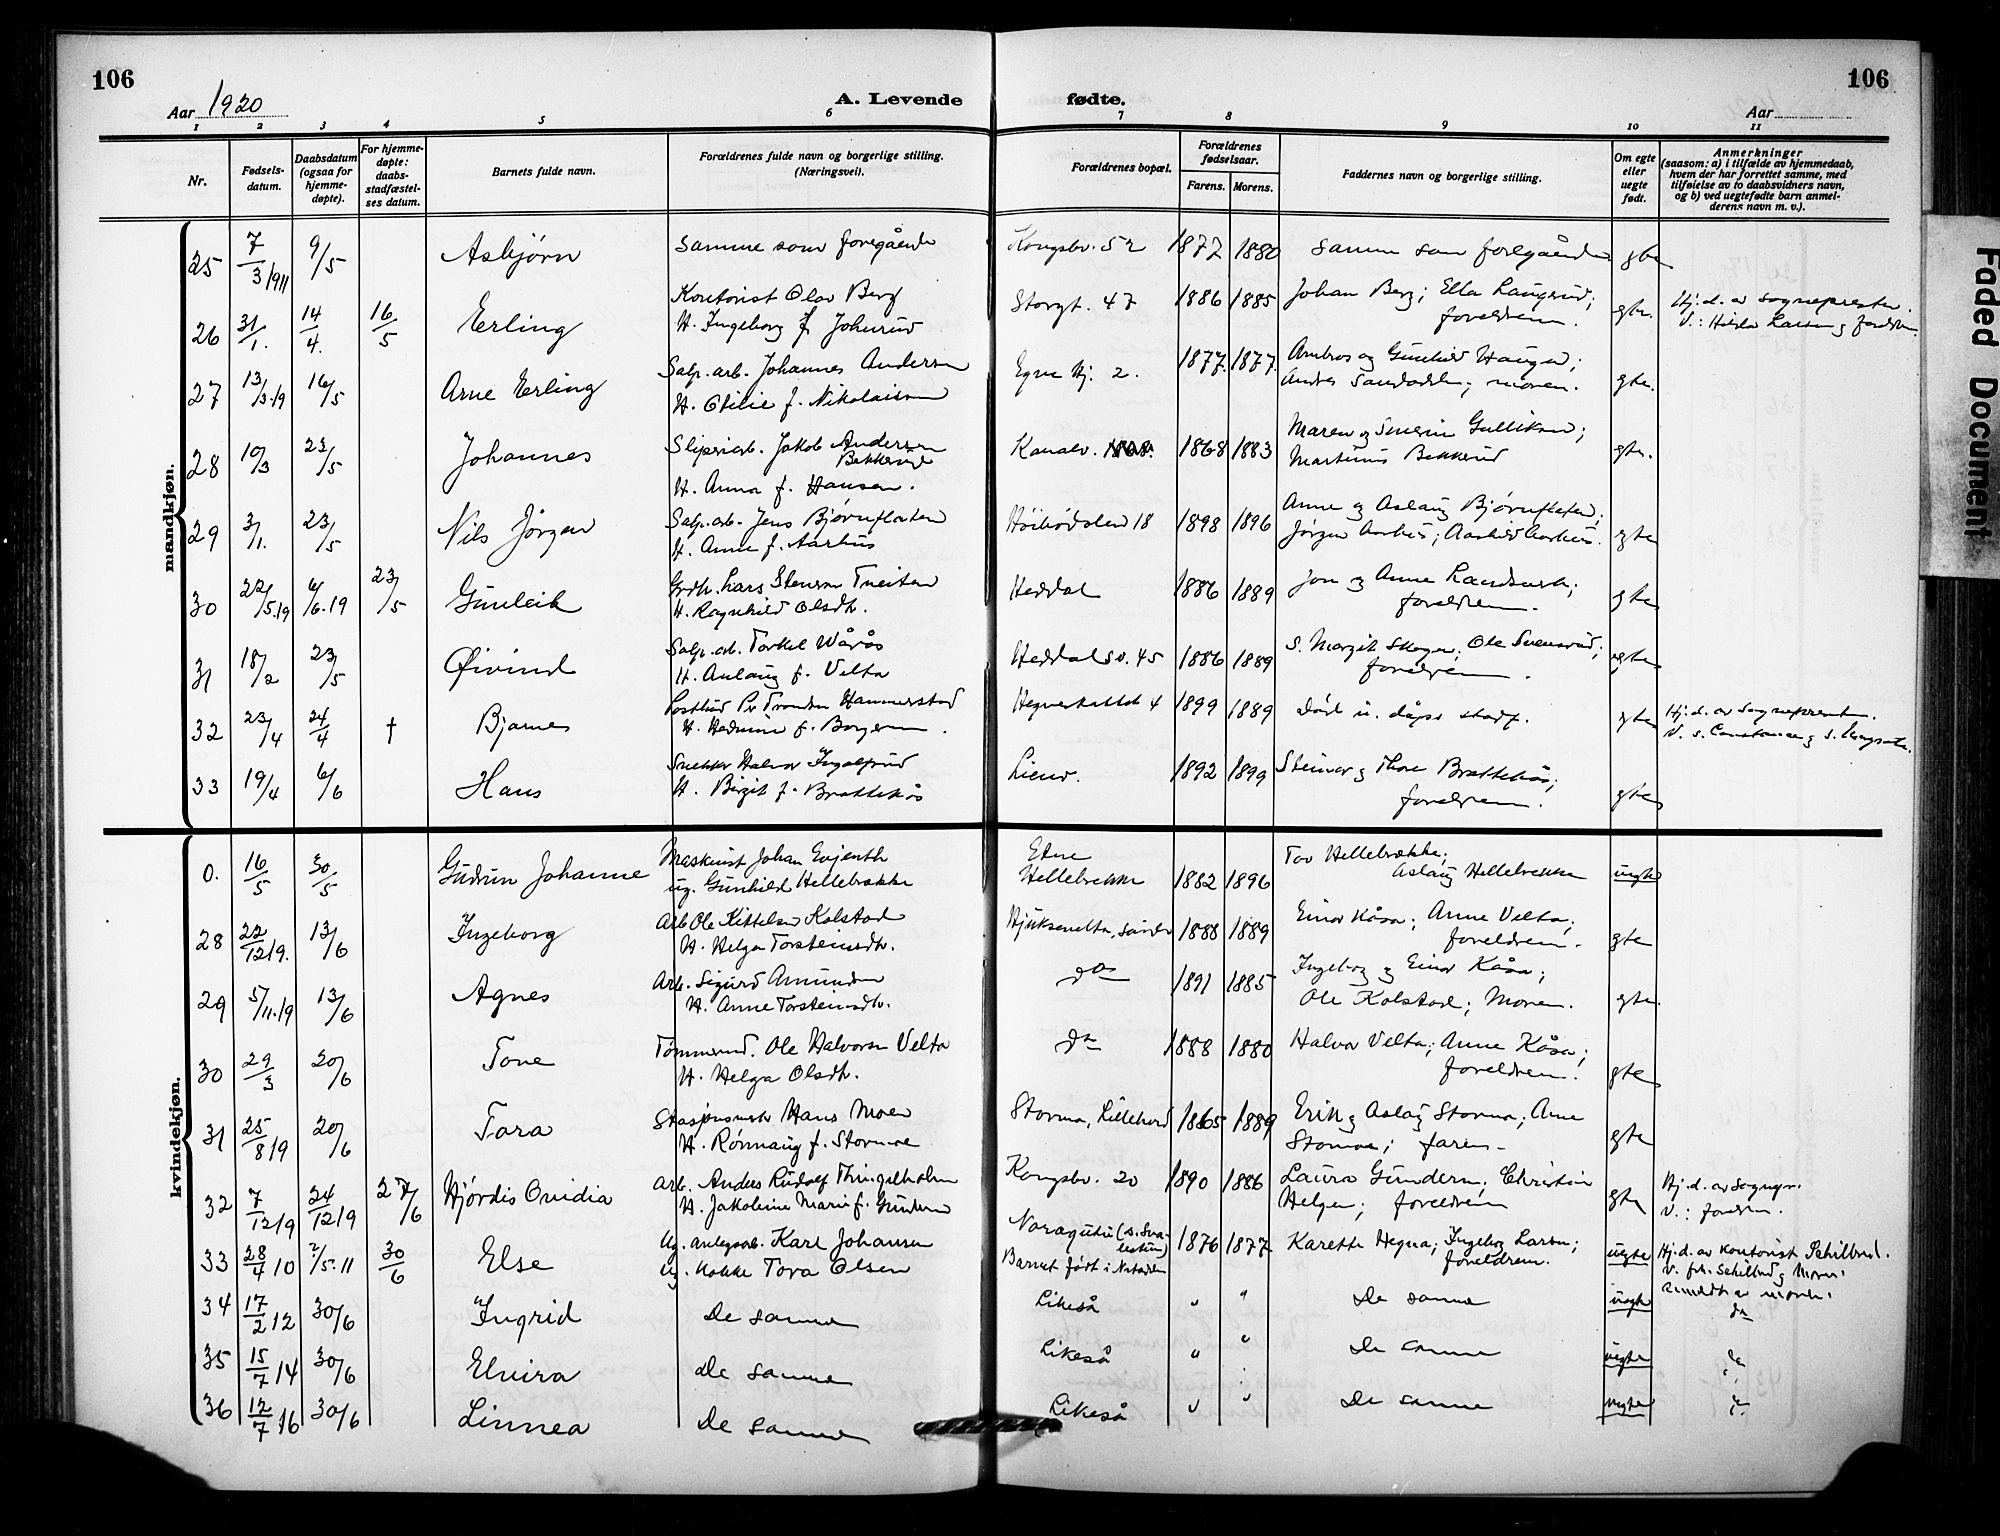 106
106
Aar 1920
A. Levende fødte.
Aar
1 2 3 4 5 6 7 8 9 10 11
Nr.
Fødsels-
datum.
Daabsdatum
(ogsaa for
hjemme-
døpte).
For hjemme-
døpte:
daabs-
stadfæstel-
ses datum.
Barnets fulde navn.
Forældrenes fulde navn og borgerlige stilling.
(Næringsvei).
Forældrenes bopæl.
Forældrenes
fødselsaar.
Farens. Morens.
Faddernes navn og borgerlige stilling.
Om egte
eller
uegte
født.
Anmerkninger
(saasom: a) i tilfælde av hjemmedaab,
hvem der har forrettet samme, med
tilføielse av to daabsvidners navn,
og b) ved uegtefødte barn anmel-
derens navn m. v.).
mandkjøn.
25 7/3 1911 9/5 Asbjørn Samme som foregående Kongsbv. 52 1877 1880 samme som foregående gte
26 31/1. 14/4. 16/5 Erling Kontorist Olav Berg Storgt. 47 1886 1885 Johan Berg; Ella Laugerud; gte. Hj. d. av sogneprester
H. Ingeborg f. Johnsrud foreldrene. V.: Hilda Larsen og foreldrene
27 13/3.19 16/5 Arne Erling Salp. arb. Johannes Andersen Egne Hj. 2. 1877. 1877. Ambros og Gunhild Haugen; gte.
H. Otilie f. Nikolaisen Andres Sandadalen; moren.
28 10/3 23/5 Johannes Sliperiarb. Jakob Andersen Kanalv. 1868 1883 Maren og Severin Gulliksen; gte.
Bekkerud Martinus Bekkerud
H. Anna f. Hansen.
29 3/1. 23/5 Nils Jørgen Salp. arb. Jens Bjørnflaten Høibødalen 18 1898 1896 Anne og Aslaug Bjørnflaten; gte
H. Anne f. Aarhus Jørgen Aarhus; Aashild Aarhus.
30 22/5.19 6/6.19 23/5 Gunleik Grdbr. Lars Stensen Tveiten Heddal 1886 1889 Jon og Anne Landsverk; gte
H. Ragnhild Olsdtr. foreldrene.
31 18/2 23/5 Øivind Salp. arb. Torkel Wårås Heddalsv. 45 1886 1889 s. Margit Skogen; Ole Svensrud; gte
H. Aslaug f. Velta foreldre.
32 23/4 24/4 † Bjarne Postbud Per Tronden Hammerstad Hegnekasset 4 1899 1889 død u. dåps stadf. gte Hj. d. av sognepresten.
H. Hedevine f. Borgersen. V. s. Constance og s.
33 19/4 6/6 Hans Snekker Halvor Ingolfsrud Lienv. 1892 1899 Steinar og Thore Brattekås; gte
H. Birgit f. Brattekås foreldrene.
kvindekjøn.
0. 16/5 30/5 Gudrun Johanne Maskinist Johan Evjenth Etne 1882 1896 Tov Hellebrekke; uegte
ug. Gunhild Hellebrekke Hellebrekke Aslaug Hellebrekke
28 22/12 19. 13/6 Ingeborg Arb. Ole Kittelsen Kolstad Hjuksevelta, Sauher 1888 1889 Einar Kåsa; Anne Velta; gte
H. Helga Torsteinsdtr. foreldrene.
29 5/11.19 13/6 Agnes Arb. Sigurd Amundsen do 1891 1885 Ingeborg og Einar Kåsa; gte.
H. Anne Torsteinsdtr. Ole Kolstad; Moren.
30 29/3 20/6 Tone Tømmermd. Ole Halvorsen Velta do 1888 1880 Halvor Velta; Anne Kåsa; gte
H. Helga Olsdtr. foreldrene.
31 25/8 19 20/6 Tora Stasjonsmester Hans Moen Stormo, Lilleherd 1865 1889 Erik og Aslaug Stormo; Arne gte
H. Rønnaug f. Stormoe Stormoe; faren.
32 7/12 19 24/12 19 27/6 Hjørdis Ovidia Arb. Anders Rudolf Thingelholm Kongsbv. 20 1890 1886 Laura Gundersen; Christian gte Hj. d. av sognepr.
H. Jakobine Marie f. Gundersen Helgen; foreldrene V.: foreldrene.
33 28/4 10 7/5.11 30/6 Else Ug. anlegsarb. Karl Johansen Noragutu (s. Sva- 1876 1877 Karette Hegna; Ingeborg Larsen; uegte Hj. d. av kontorist Schilbred.
Ug. Kokke Tora Olsen Barnet født i Notodden foreldrene. V. frk. Schilbred og Moren.
34 17/2 12 30/6 Ingrid De samme Likeså " " De samme uegte do
35 15/7 14 30/6 Elvira De samme Likeså " " De samme uegte do
36 12/7 16 30/6 Linnea De samme Likeså " " De samme uegte
Faded Document